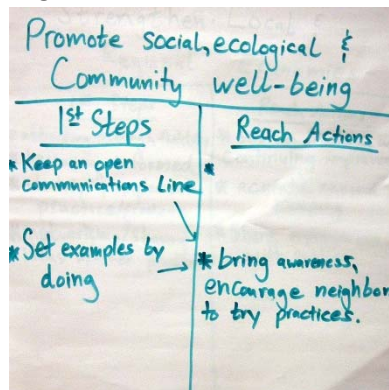 Promote social, ecological &
Community well-being
1st Steps
* Keep an open
communications Line
* Set examples by
doing
Reach Actions
*
* bring awareness,
encourage neighbor
to try practices.